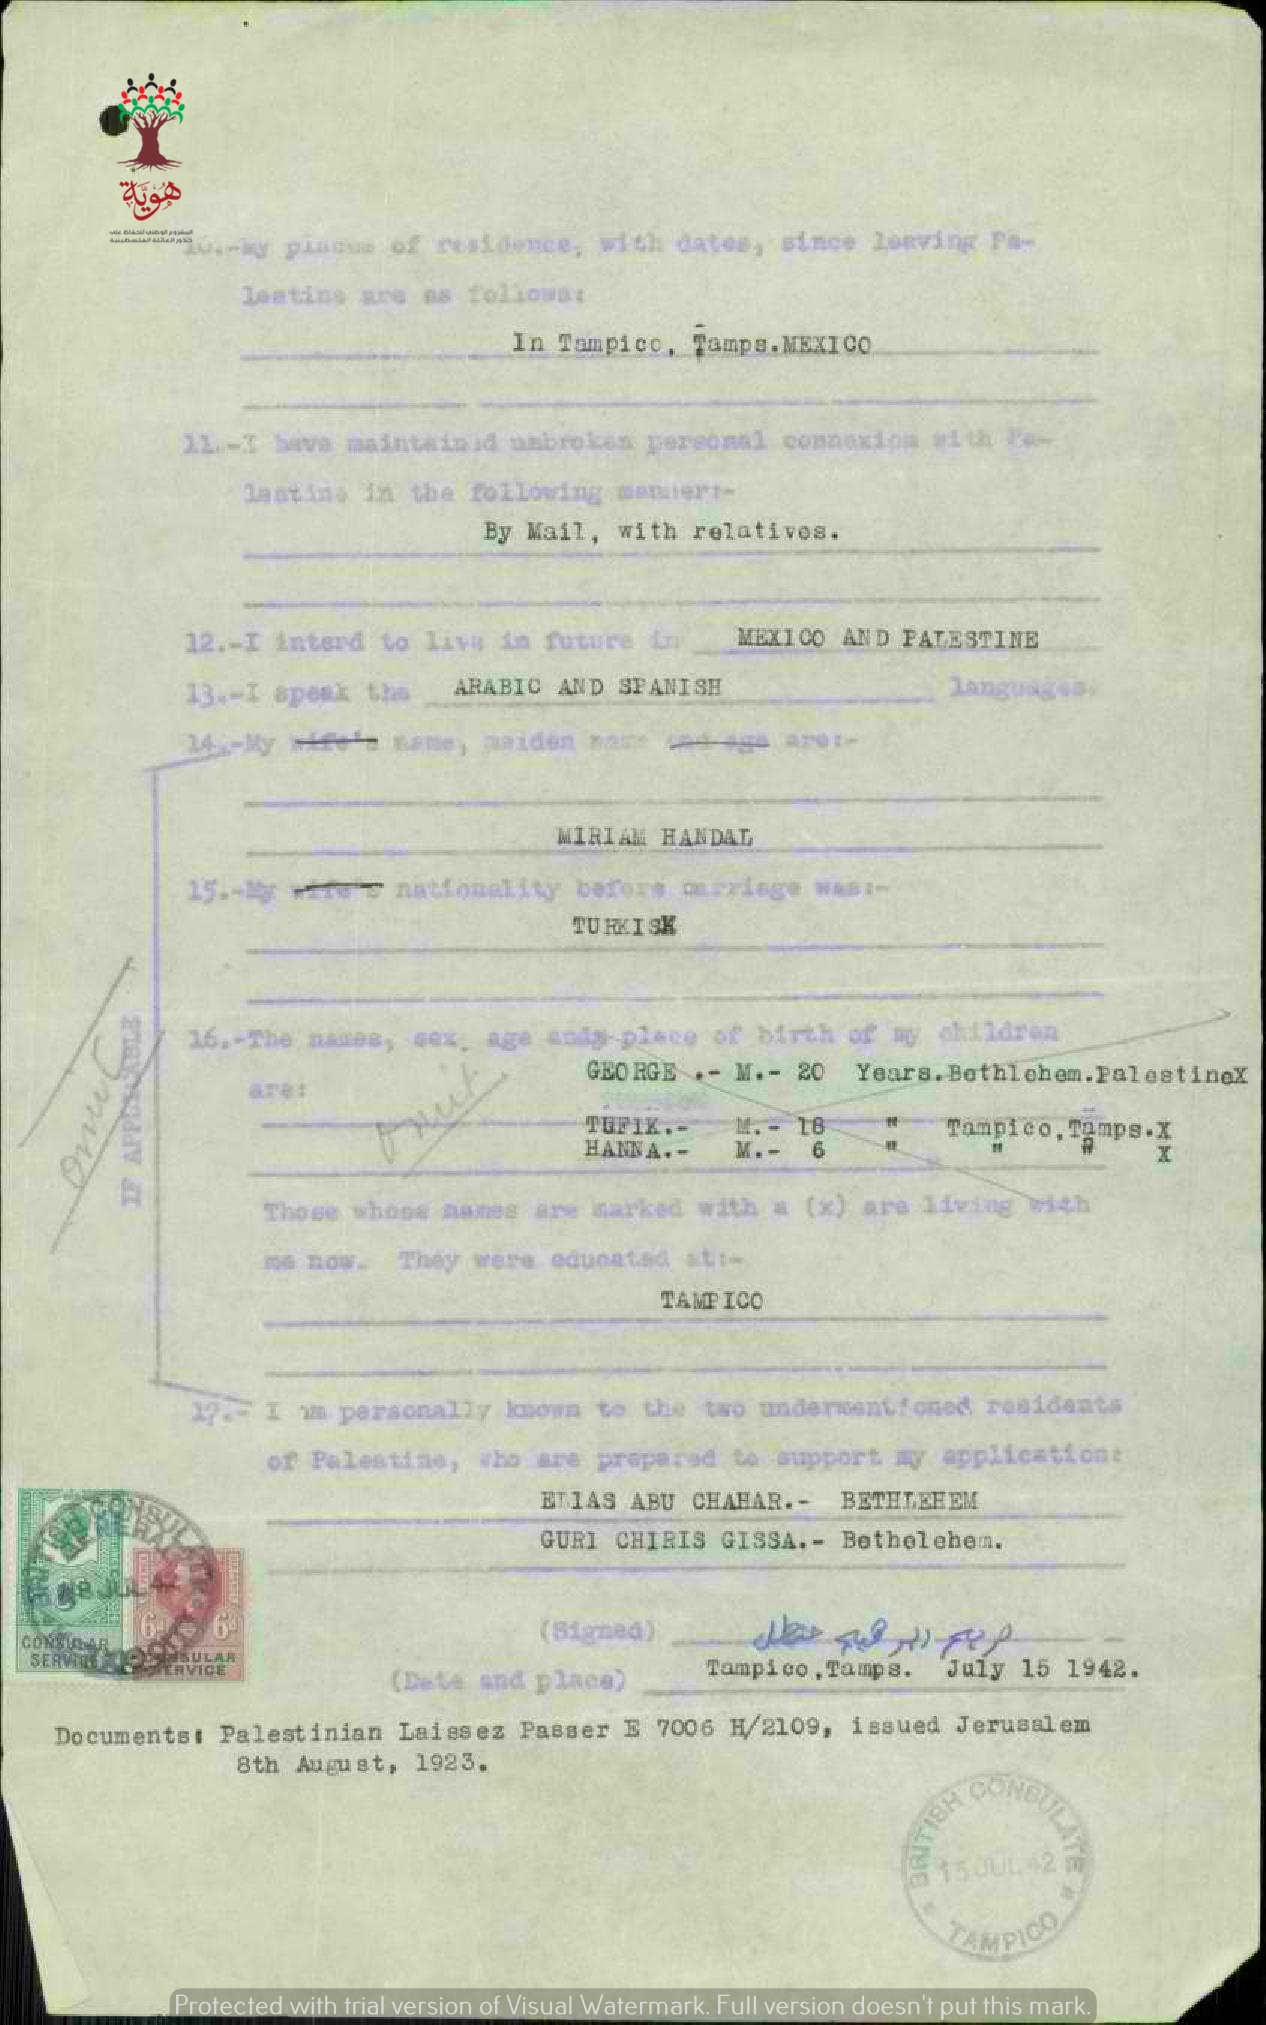 هوية
المشروع الوطني للحفاظ على
جذور العائلة الفلسطينية
10.-My places of residence, with dates, since leaving Pa-
lestine are as follows:
In Tampico, Tamps.MEXICO
11.-I have maintained unbroken personal connexion with Pa-
lestine in the following manner:-
By Mail, with relatives.
12.-I intend to live in future in MEXICO AND PALESTINE
13.-I speak the ARABIC AND SPANISH languages.
14.-My wife's name, maiden name and age are:-
MIRIAM HANDAL
15.-My wife's nationality before marriage was:-
TURKISH
16.-The names, sex, age and place of birth of my children
are:
GEORGE .- M.- 20 Years.Bethlehem.PalestineX
TUFIK.- M.- 18 " Tampico,Tamps.X
HANNA.- M.- 6 " " " X
omit
omit
IF APPLICABLE
Those whose names are marked with a (x) are living with
me now. They were educated at:-
TAMPICO
17.- I am personally known to the two undermentioned residents
of Palestine, who are prepared to support my application:
ELIAS ABU CHAHAR.- BETHLEHEM
GURI CHIRIS GISSA.- Bethelehem.
(Signed)
(Date and place) Tampico,Tamps. July 15 1942.
CONSULAR
SERVICE
6d 6d
CONSULAR
SERVICE
Documents: Palestinian Laissez Passer E 7006 H/2109, issued Jerusalem
8th August, 1923.
BRITISH CONSULATE
15 JUL 42
TAMPICO
Protected with trial version of Visual Watermark. Full version doesn't put this mark.